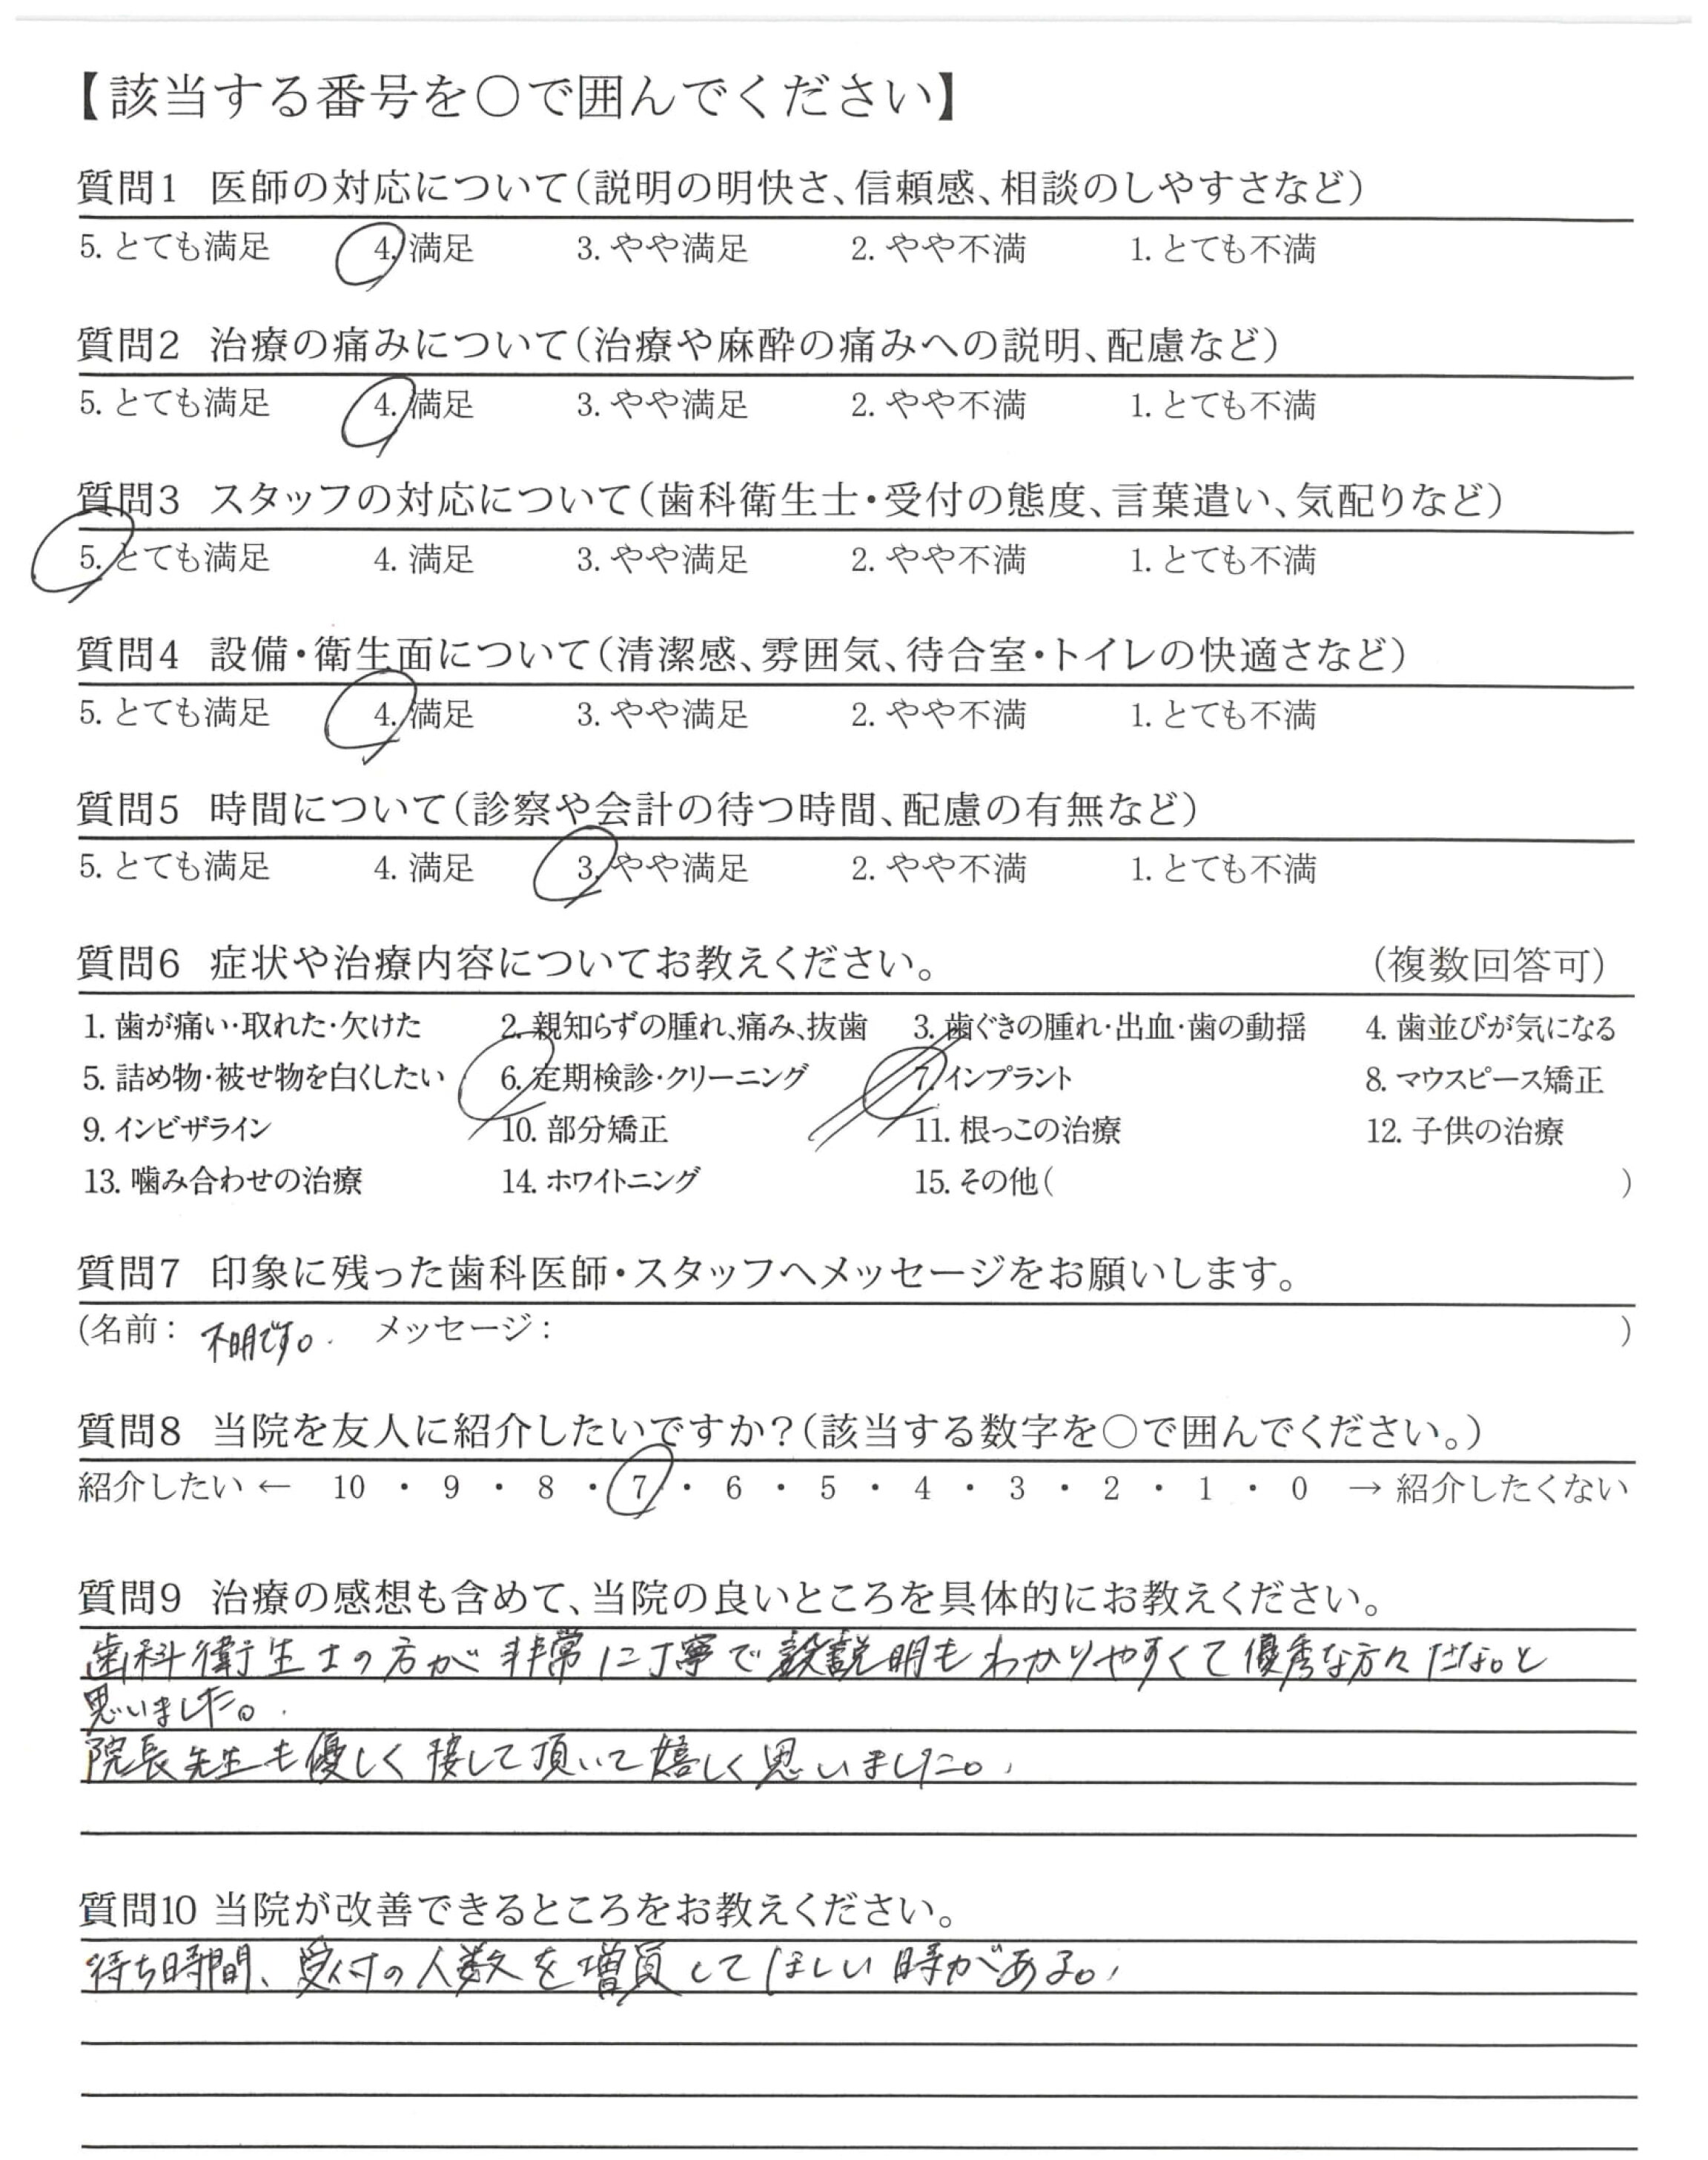 【該当する番号を○で囲んでください】
質問1 医師の対応について(説明の明快さ、信頼感、相談のしやすさなど)
5. とても満足 4. 満足 3. やや満足 2. やや不満 1. とても不満
質問2 治療の痛みについて(治療や麻酔の痛みへの説明、配慮など)
5. とても満足 4. 満足 3. やや満足 2. やや不満 1. とても不満
質問3 スタッフの対応について(歯科衛生士・受付の態度、言葉遣い、気配りなど)
5. とても満足 4. 満足 3. やや満足 2. やや不満 1. とても不満
質問4 設備・衛生面について(清潔感、雰囲気、待合室・トイレの快適さなど)
5. とても満足 4. 満足 3. やや満足 2. やや不満 1. とても不満
質問5 時間について(診察や会計の待つ時間、配慮の有無など)
5. とても満足 4. 満足 3. やや満足 2. やや不満 1. とても不満
質問6 症状や治療内容についてお教えください。 (複数回答可)
1. 歯が痛い・取れた・欠けた 2. 親知らずの腫れ、痛み、抜歯 3. 歯ぐきの腫れ・出血・歯の動揺 4. 歯並びが気になる
5. 詰め物・被せ物を白くしたい 6. 定期検診・クリーニング 7. インプラント 8. マウスピース矯正
9. インビザライン 10. 部分矯正 11. 根っこの治療 12. 子供の治療
13. 噛み合わせの治療 14. ホワイトニング 15. その他( )
質問7 印象に残った歯科医師・スタッフへメッセージをお願いします。
(名前: 不明です。 メッセージ: )
質問8 当院を友人に紹介したいですか?(該当する数字を○で囲んでください。)
紹介したい ← 10 ・ 9 ・ 8 ・ 7 ・ 6 ・ 5 ・ 4 ・ 3 ・ 2 ・ 1 ・ 0 → 紹介したくない
質問9 治療の感想も含めて、当院の良いところを具体的にお教えください。
歯科衛生士の方が非常に丁寧で説明もわかりやすくて優秀な方々だな。と
思いました。
院長先生も優しく接して頂いて嬉しく思いました。
質問10 当院が改善できるところをお教えください。
待ち時間、受付の人数を増員してほしい時がある。